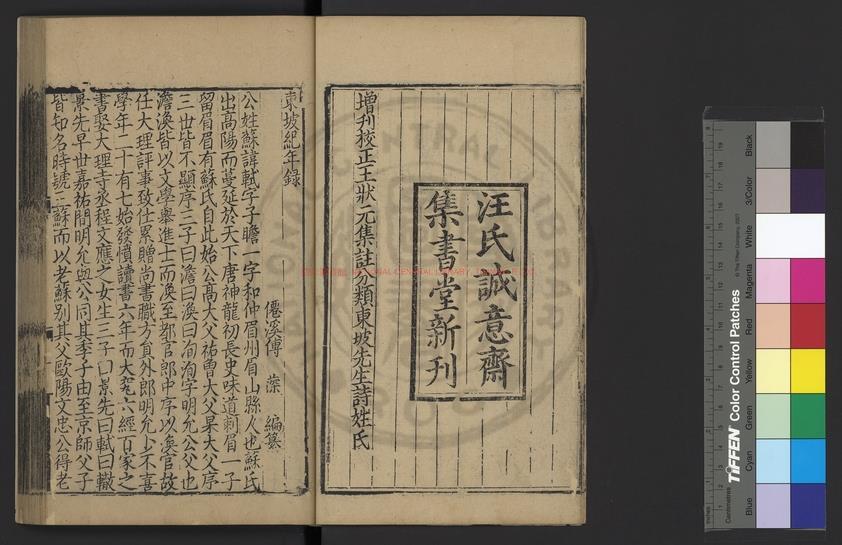 汪氏誠意齋
集書堂新刊
增刊校正王狀元集註分類東坡先生詩姓氏
東坡紀年錄
僊溪傅 藻 編纂
公姓蘇諱軾字子瞻一字和仲眉州眉山縣人也蘇氏
出高陽而蔓延於天下唐神龍初長史味道刺眉 子
留眉眉有蘇氏自此始公高大父祐曾大父杲大父序
三世皆不顯序三子曰澹曰渙曰洵洵字明允公父也
澹渙皆以文學舉進士而渙至都官郎中序以渙官故
任大理評事致仕累贈尚書職方員外郎明允少不喜
學年二十有七始發憤讀書六年而大究六經百家之
書娶大理寺丞程文應之女生三子曰景先曰軾曰轍
景先早世嘉祐間明允與公同其季子由至京師父子
皆知名時號三蘇而以老蘇別其父歐陽文忠公得老
NATIONAL CENTRAL LIBRARY
TIFFEN Color Control Patches
© The Tiffen Company, 2007
Centimetres
Blue
Cyan
Green
Yellow
Red
Magenta
White
3/Color
Black